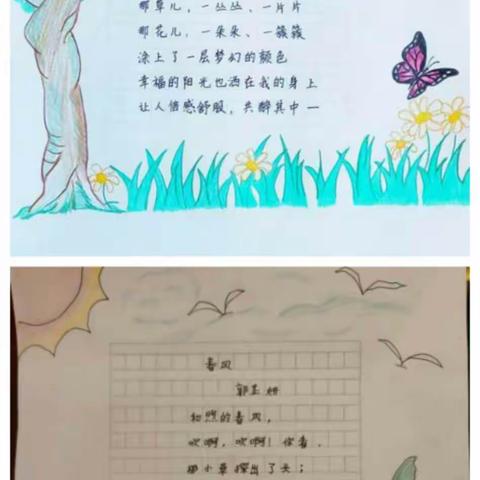 那草儿,一丛丛、一片片
那花儿,一朵朵、一簇簇
涂上了一层梦幻的颜色
幸福的阳光也洒在我的身上
让人倍感舒服,共醉其中一
春风
郭芷妍
和煦的春风,
吹啊,吹啊!你看,
那小草探出了头;